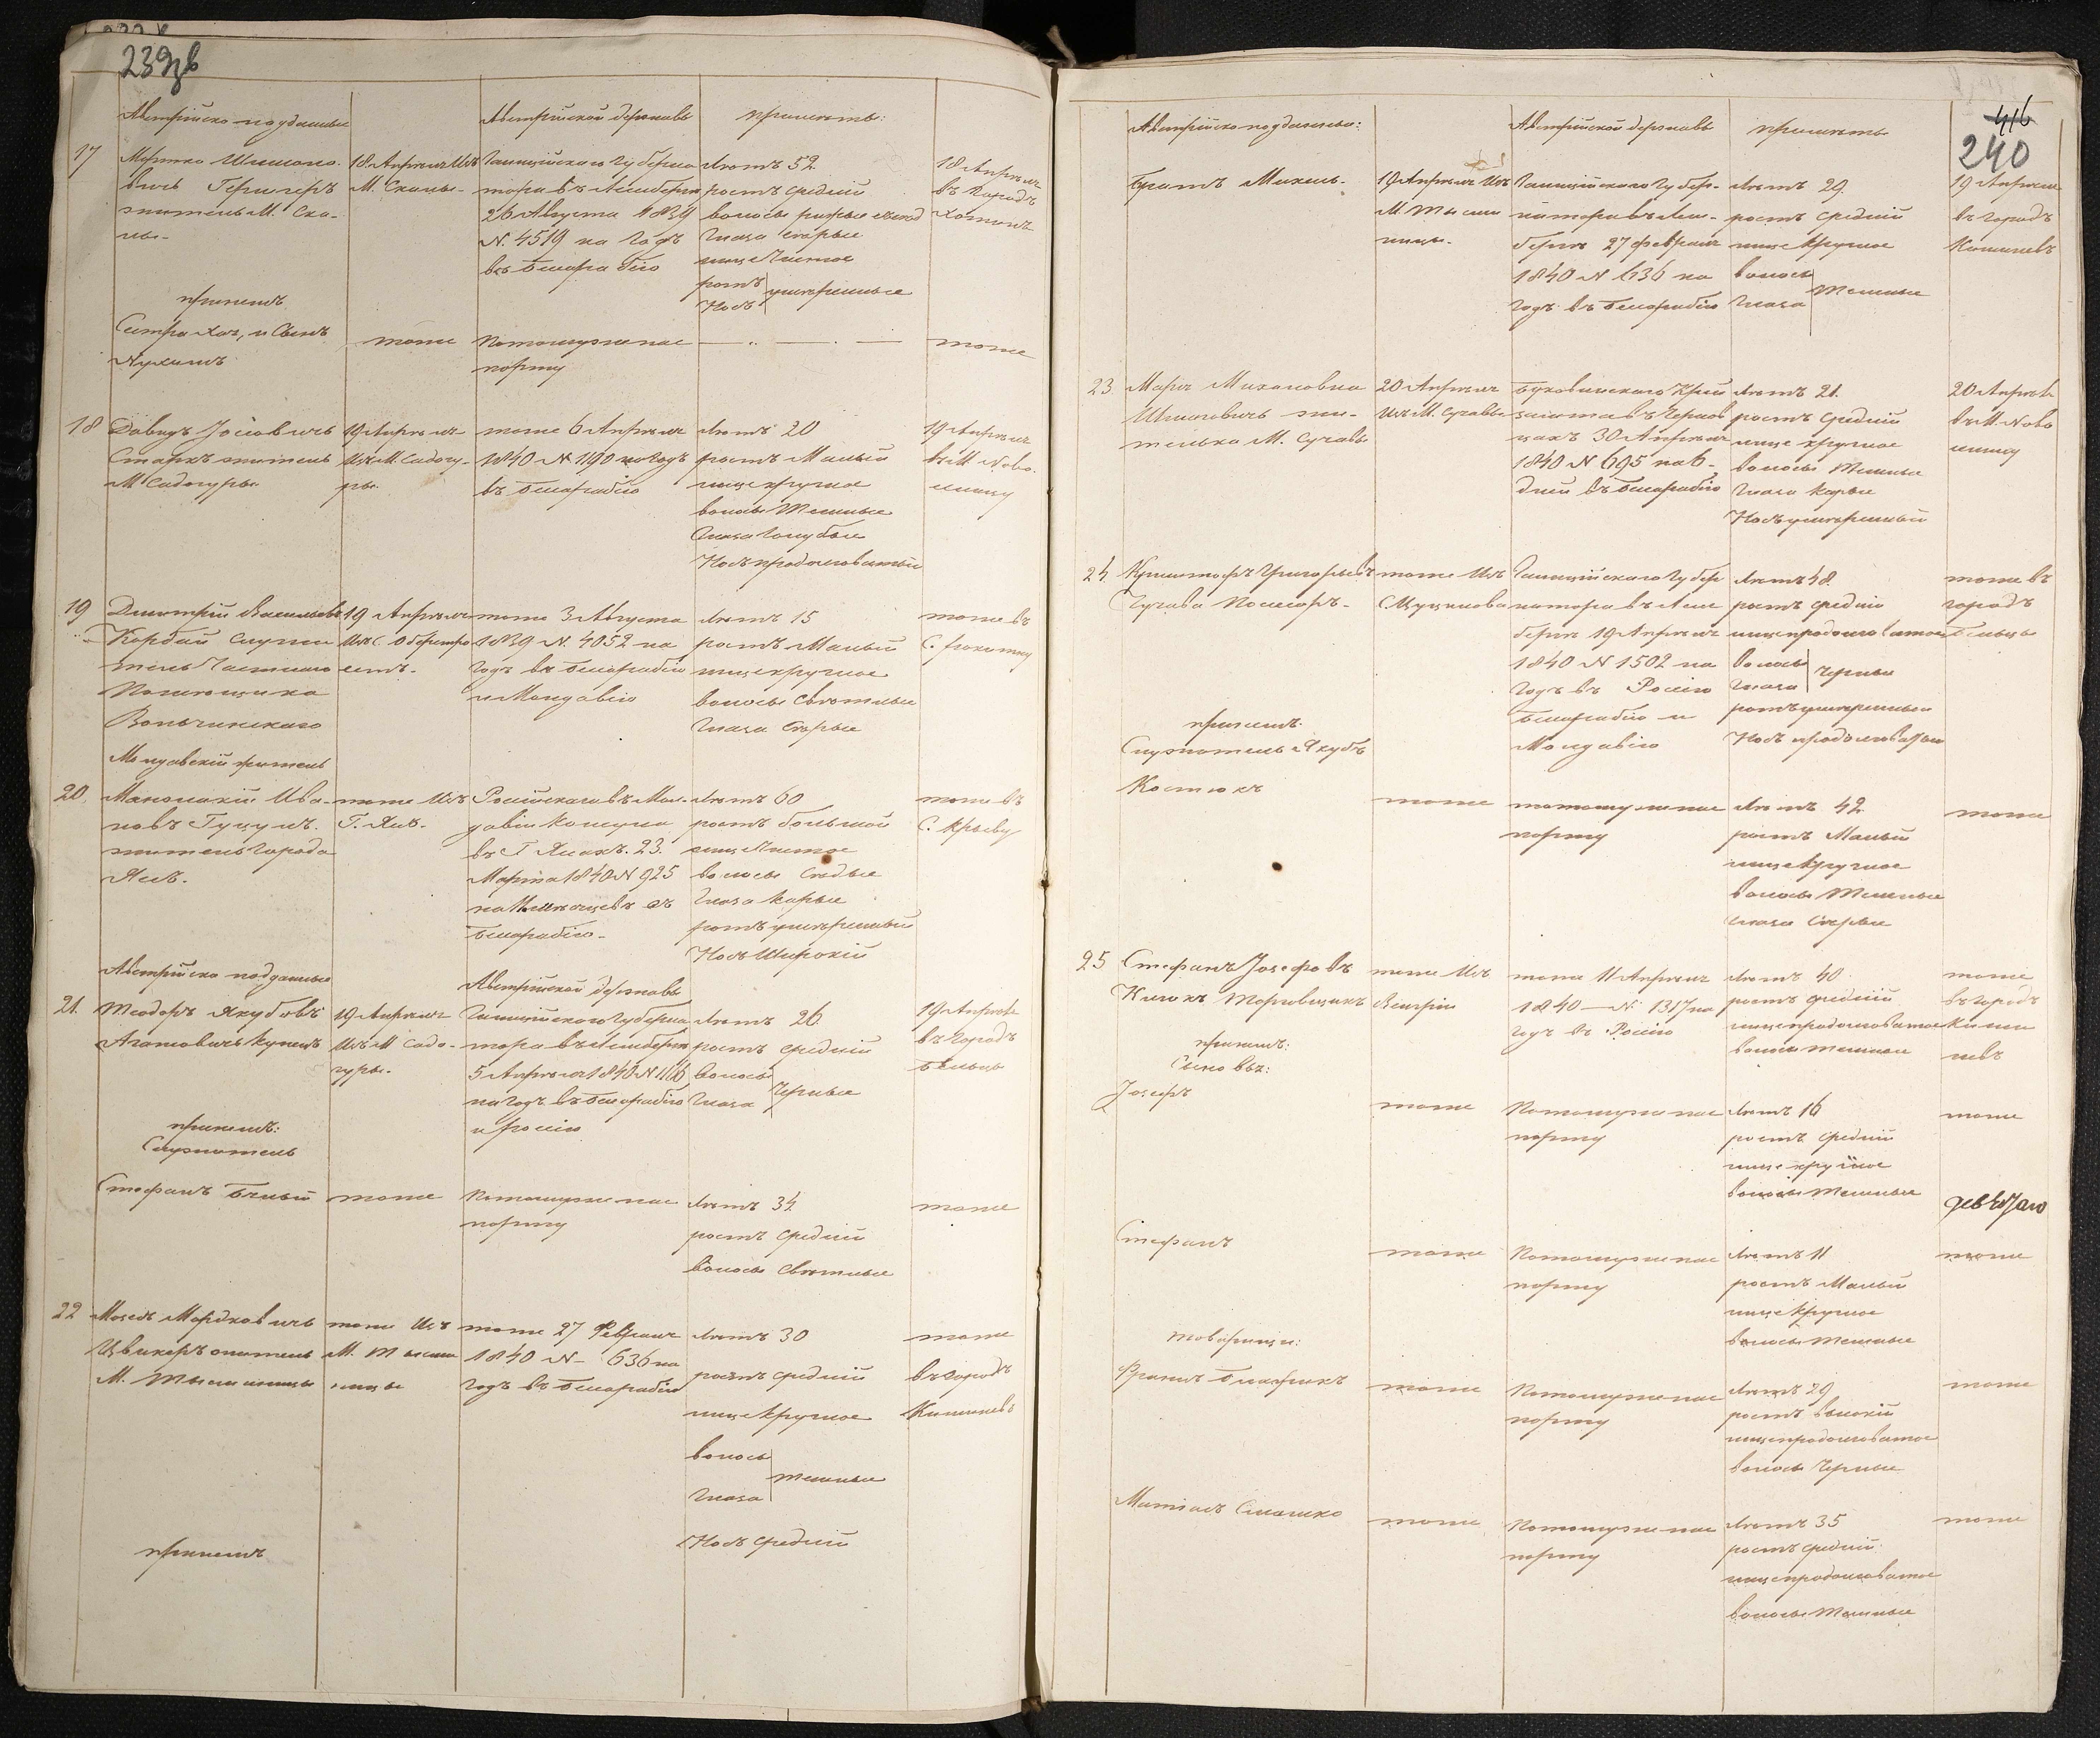 239 зв
Австрійско подданные
Австрійской державы
примѣты:
17
Мортко Шимоно-
вичъ Герштеръ
житель М. Ска-
лы-
18 Апрѣля Изъ
М. Скалы-
Галиційскаго Губерна
тора въ Лембергѣ
26 Августа 1839
N. 4519 на годъ
въ Бессарабію
Лѣтъ 52
ростъ средній
волосы рыжые
глаза сѣрые
лице чистое
ротъ
носъ
умѣренные
18 Апрѣля
въ городъ
Хотинъ
при немъ
Сестра Хая, и Сынъ
Нухимъ
тоже
Потомуже пас
порту
тоже
18
Давидъ Іосіовичъ
Старкъ житель
М Садогуры
19 Апрѣля
Изъ М. Садогу-
ры.
тоже 6 Апрѣля
1840 N 1190 на годъ
въ Бессарабію
Лѣтъ 20
ростъ Малый
лице круглое
волосы темные
глаза голубые
Носъ продолговатый
19 Апрѣля
въ М Ново-
селицу
19
Дмитрій Васильевъ
Кордай служи
тель частнаго
Помѣщика
Волчинскаго
19 Апрѣля
Изъ С. Оберстро
естъ-
тоже 3 Августа
1839 N. 4052 на
годъ въ Бессарабію
и Молдавію
Лѣтъ 15
ростъ Малый
лице круглое
волосы свѣтлые
глаза сѣрые
тоже въ
С. Рокитну
Молдавскій житель
20.
Манолакій Ива-
новъ Гуцулъ.
житель города
Ясъ.
тоже Изъ
Г. Ясъ-
Россійскаго въ Мол-
давіи Консула
въ Г Яссахъ. 23.
Марта 1840 N 925
на Мѣсяцевъ въ
Бессарабію-
Лѣтъ 60
ростъ большой
лице чистое
волосы сѣдые
глаза карые
ротъ умѣренный
Носъ широкій
тоже въ
С. Крыву
Австрійско подданные
Австрійской державы
21.
Теодоръ Якубовъ
Агановичъ купецъ
19 Апрѣля
Изъ М Садо-
гуры-
Галиційскаго Губерна
тора въ Лембергѣ
5 Апрѣля 1840 N 1166
на годъ въ Бессарабію
и Россію
Лѣтъ 26
ростъ средній
волосы
глаза
черные
19 Апрѣля
въ городъ
Бельцы
при немъ:
Служитель
Стефанъ Бѣлый
тоже
Потомуже пас
порту
Лѣтъ 34
ростъ средній
волосы свѣтлые
тоже
22
Мозесъ Мордковичъ
Цвикеръ житель
М. Тысьменицы
тоже Изъ
М. Тысьме
ницы
тоже 27 Февраля
1840 N- 636 на
годъ въ Бессарабію
Лѣтъ 30
ростъ средній
лице круглое
волосы
глаза
темные
Носъ средній
тоже
въ городъ
Кишиневъ
при немъ
416
240
Австрійско подданные:
Австрійской державы
примѣты
братъ Михель-
19 Апрѣля Изъ
М Тысьме
ницы-
Галиційскаго Губер-
натора въ Лем-
бергѣ 27 февраля
1840 N 636 на
годъ въ Бессарабію
Лѣтъ 29.
ростъ средній
лице круглое
волосы
глаза
темные
19 Апрѣля
въ городъ
Кишиневъ
23
Марія Михаловна
Шимовичъ жи-
телька М. Сучавы
20 Апрѣля
Изъ М. Сучавы
Буковинскаго Крей
замта въ Чернов
цахъ 30 Апрѣля
1840 N 695 на 6-
дней въ Бессарабію
Лѣтъ 21.
ростъ средній
лице круглое
волосы темные
глаза карые
Носъ умѣренный
20 Апрѣля
въ М. Ново
селицу
24
Криштофъ Григорьевъ
Чучава Посесоръ-
тоже Изъ
С Цуцикова
Галиційскаго Губер
натора въ Лем
бергѣ 19 Апрѣля
1840 N 1502 на
годъ въ Россію
Бессарабію и
Молдавію
Лѣтъ 48.
ростъ средній
лице продолговатое
волосы
глаза
черные
ротъ умѣренный
Носъ продолговатый
тоже въ
городъ
Бельцы
при немъ:
Служитель Якубъ
Костюкъ
тоже
потомуже пас
порту
Лѣтъ 42
ростъ Малый
лице круглое
волосы темные
глаза сѣрые
тоже
25
Стефанъ Іозефовъ
тоже Изъ
Венгріи
тоже 11 Апрѣля
1840 — N. 1317 на
годъ въ Россію
Лѣтъ 40.
ростъ средній
лице продолговатое
волосы темные
тоже
въ городъ
Киши
невъ
при немъ:
Сыновья:
Іозефъ
тоже
Потомуже пас
порту
Лѣтъ 16
ростъ средній
лице круглое
волосы темные
тоже
Стефанъ
тоже
Потомуже пас
порту
Лѣтъ 11
ростъ Малый
лице круглое
волосы темные
тоже
товарищи:
Францъ
тоже
Потомуже пас
порту
Лѣтъ 29
ростъ высокій
лице продолговатое
волосы черные
тоже
Матіасъ
тоже
Потомуже пас
порту
Лѣтъ 35
ростъ средній
лице продолговатое
волосы темные
тоже